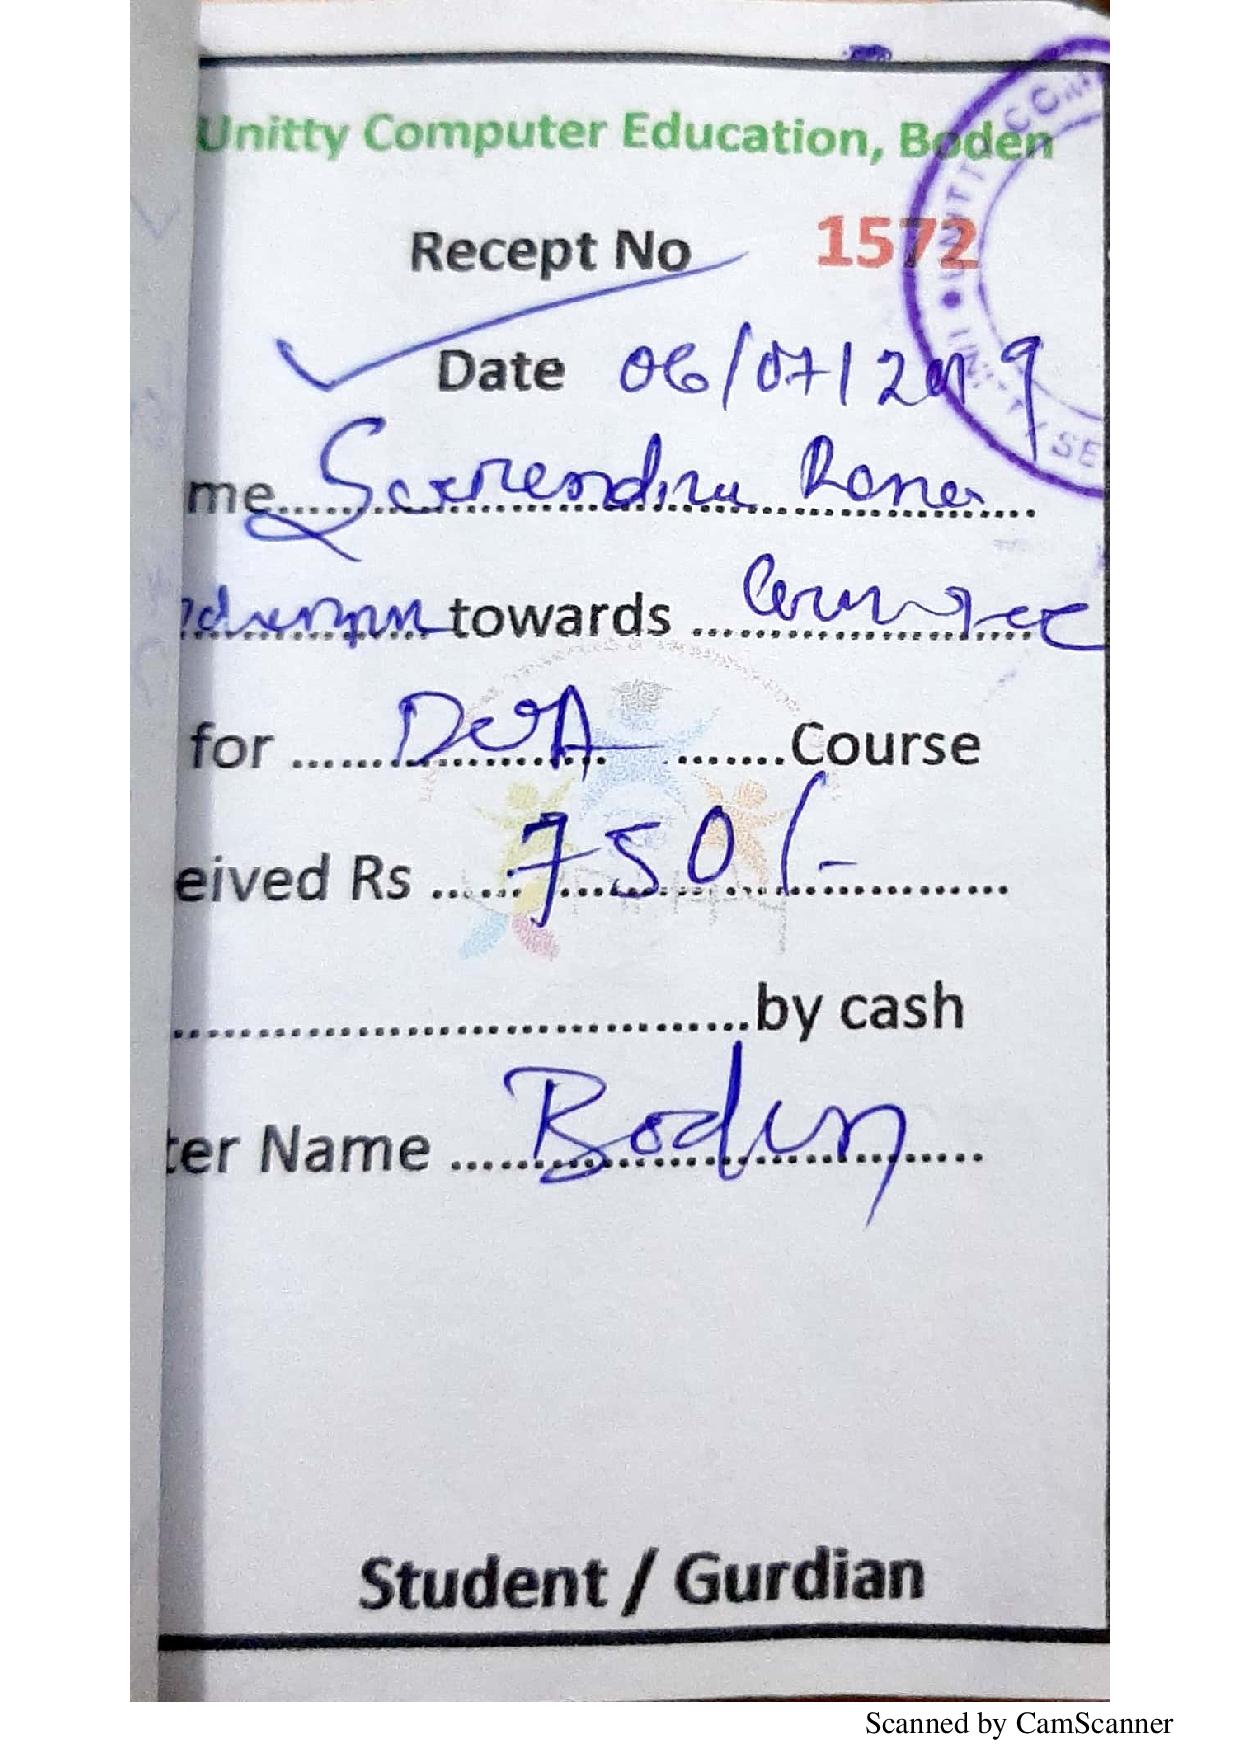 Unitty Computer Education, Boden
Recept No 1572
Date 06/07/2019
me Surendra Rana
towards Course
for DCA Course
eived Rs 750/-
by cash
ter Name Boden
Student / Gurdian
Scanned by CamScanner